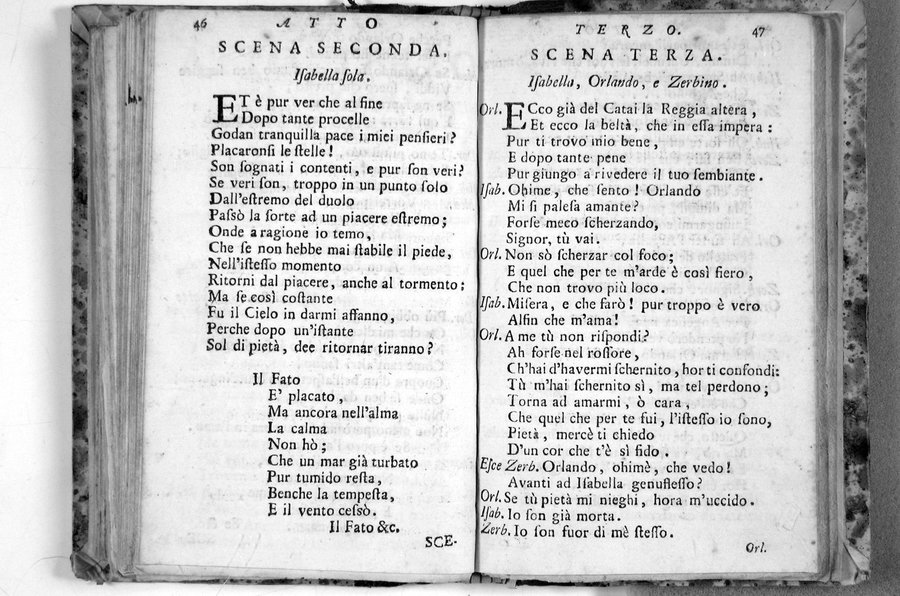 46
ATTO
SCENA SECONDA.
Iſabella ſola.
ET è pur ver che al fine
Dopo tante procelle
Godan tranquilla pace i miei penſieri?
Placaronſi le ſtelle!
Son ſognati i contenti, e pur ſon veri?
Se veri ſon, troppo in un punto ſolo
Dall'eſtremo del duolo
Paſsò la ſorte ad un piacere eſtremo;
Onde a ragione io temo,
Che ſe non hebbe mai ſtabile il piede,
Nell'iſteſſo momento
Ritorni dal piacere, anche al tormento:
Ma ſe così coſtante
Fu il Cielo in darmi affanno,
Perche dopo un'iſtante
Sol di pietà, dee ritornar tiranno?
Il Fato
E' placato,
Ma ancora nell'alma
La calma
Non hò;
Che un mar già turbato
Pur tumido reſta,
Benche la tempeſta,
E il vento ceſsò.
Il Fato &c.
SCE-
TERZO.
47
SCENA TERZA.
Iſabella, Orlando, e Zerbino.
Orl. ECco già del Catai la Reggia altera,
Et ecco la beltà, che in eſſa impera:
Pur ti trovo mio bene,
E dopo tante pene
Pur giungo a rivedere il tuo ſembiante.
Iſab. Ohime, che ſento! Orlando
Mi ſi paleſa amante?
Forſe meco ſcherzando,
Signor, tù vai.
Orl. Non sò ſcherzar col foco;
E quel che per te m'arde è così fiero,
Che non trovo più loco.
Iſab. Miſera, e che farò! pur troppo è vero
Alfin che m'ama!
Orl. A me tù non riſpondi?
Ah forſe nel roſſore,
Ch'hai d'havermi ſchernito, hor ti confondi:
Tù m'hai ſchernito sì, ma tel perdono;
Torna ad amarmi, ò cara,
Che quel che per te fui, l'iſteſſo io ſono,
Pietà, mercè ti chiedo
D'un cor che t'è sì fido.
Eſce Zerb. Orlando, ohimè, che vedo!
Avanti ad Iſabella genufleſſo?
Orl. Se tù pietà mi nieghi, hora m'uccido.
Iſab. Io ſon già morta.
Zerb. Io ſon fuor di mè ſteſſo.
Orl.